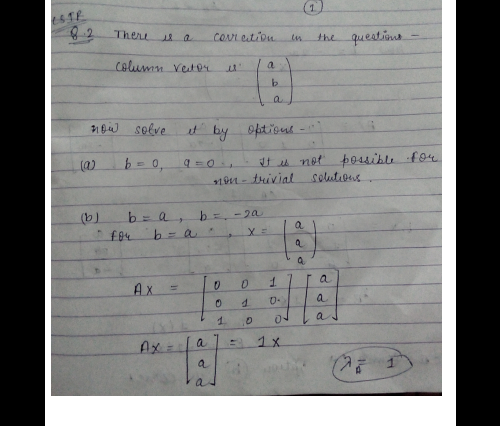 ①
CSIR
Q.2 There is a correction in the questions -
column vector is (a b a)
now solve it by options -
(a) b = 0, a = 0, It is not possible for
non-trivial solutions.
(b) b = a, b = -2a
for b = a, x = (a a a)
Ax = [0 0 1 0 1 0 1 0 0] [a a a]
Ax = [a a a] = 1x
λ = 1